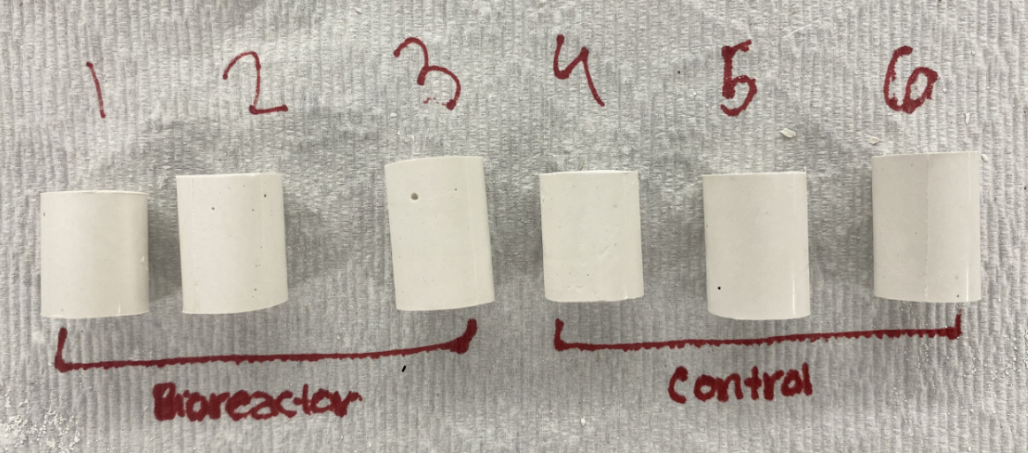 1 2 3 4 5 6
Bioreactor Control